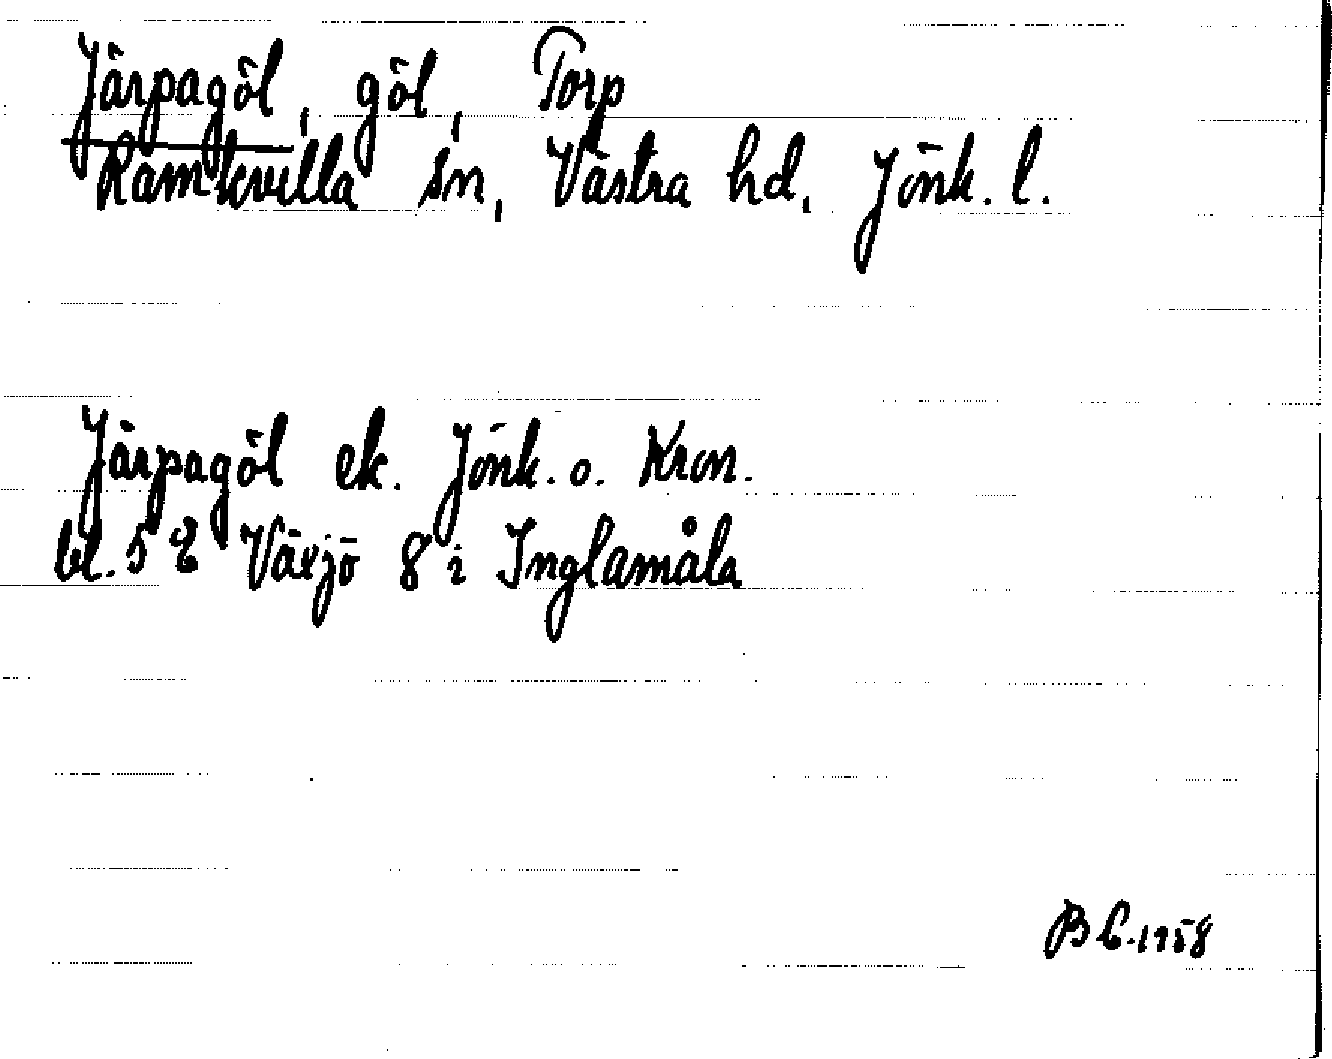 Järpagöl, göl, Torp
Ramkvilla sn, Västra hd, Jönk. l.
Järpagöl ek. Jönk. o. Kron.
bl. 5 E Växjö 8 i Inglamåla
B C. 1958